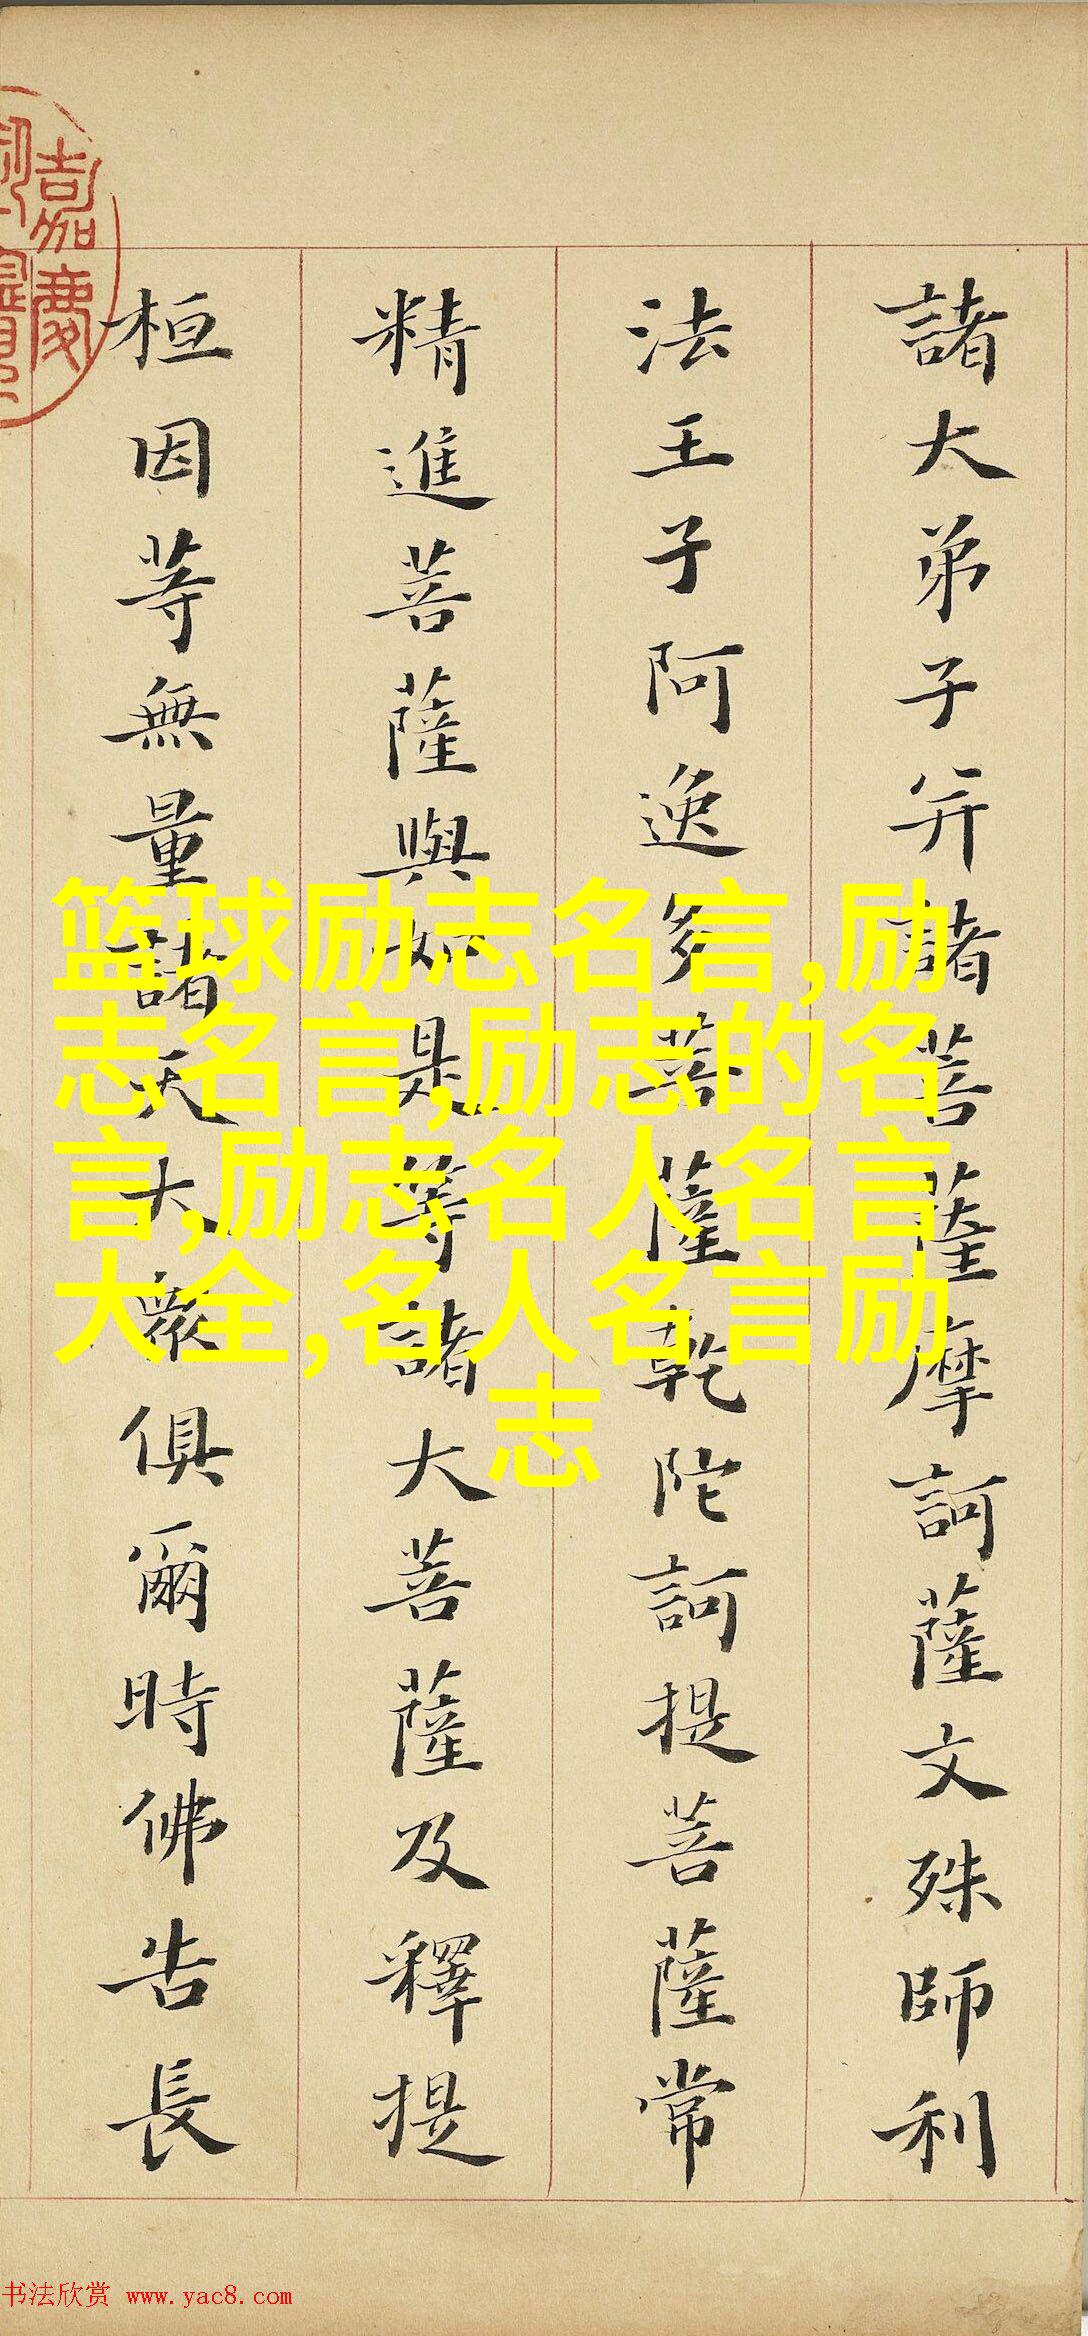 諸大弟子并諸菩薩摩訶薩文殊師利
法王子阿逸多菩薩乾陀訶提菩薩常
精進菩薩與如是等諸大菩薩及釋提
桓因等無量諸天大衆俱爾時佛告長
嘉慶
篮球励志名言,励
志名言,励志的名
言,励志,名人名言
大全,名人名言励
志
书法欣赏 www.yac8.com